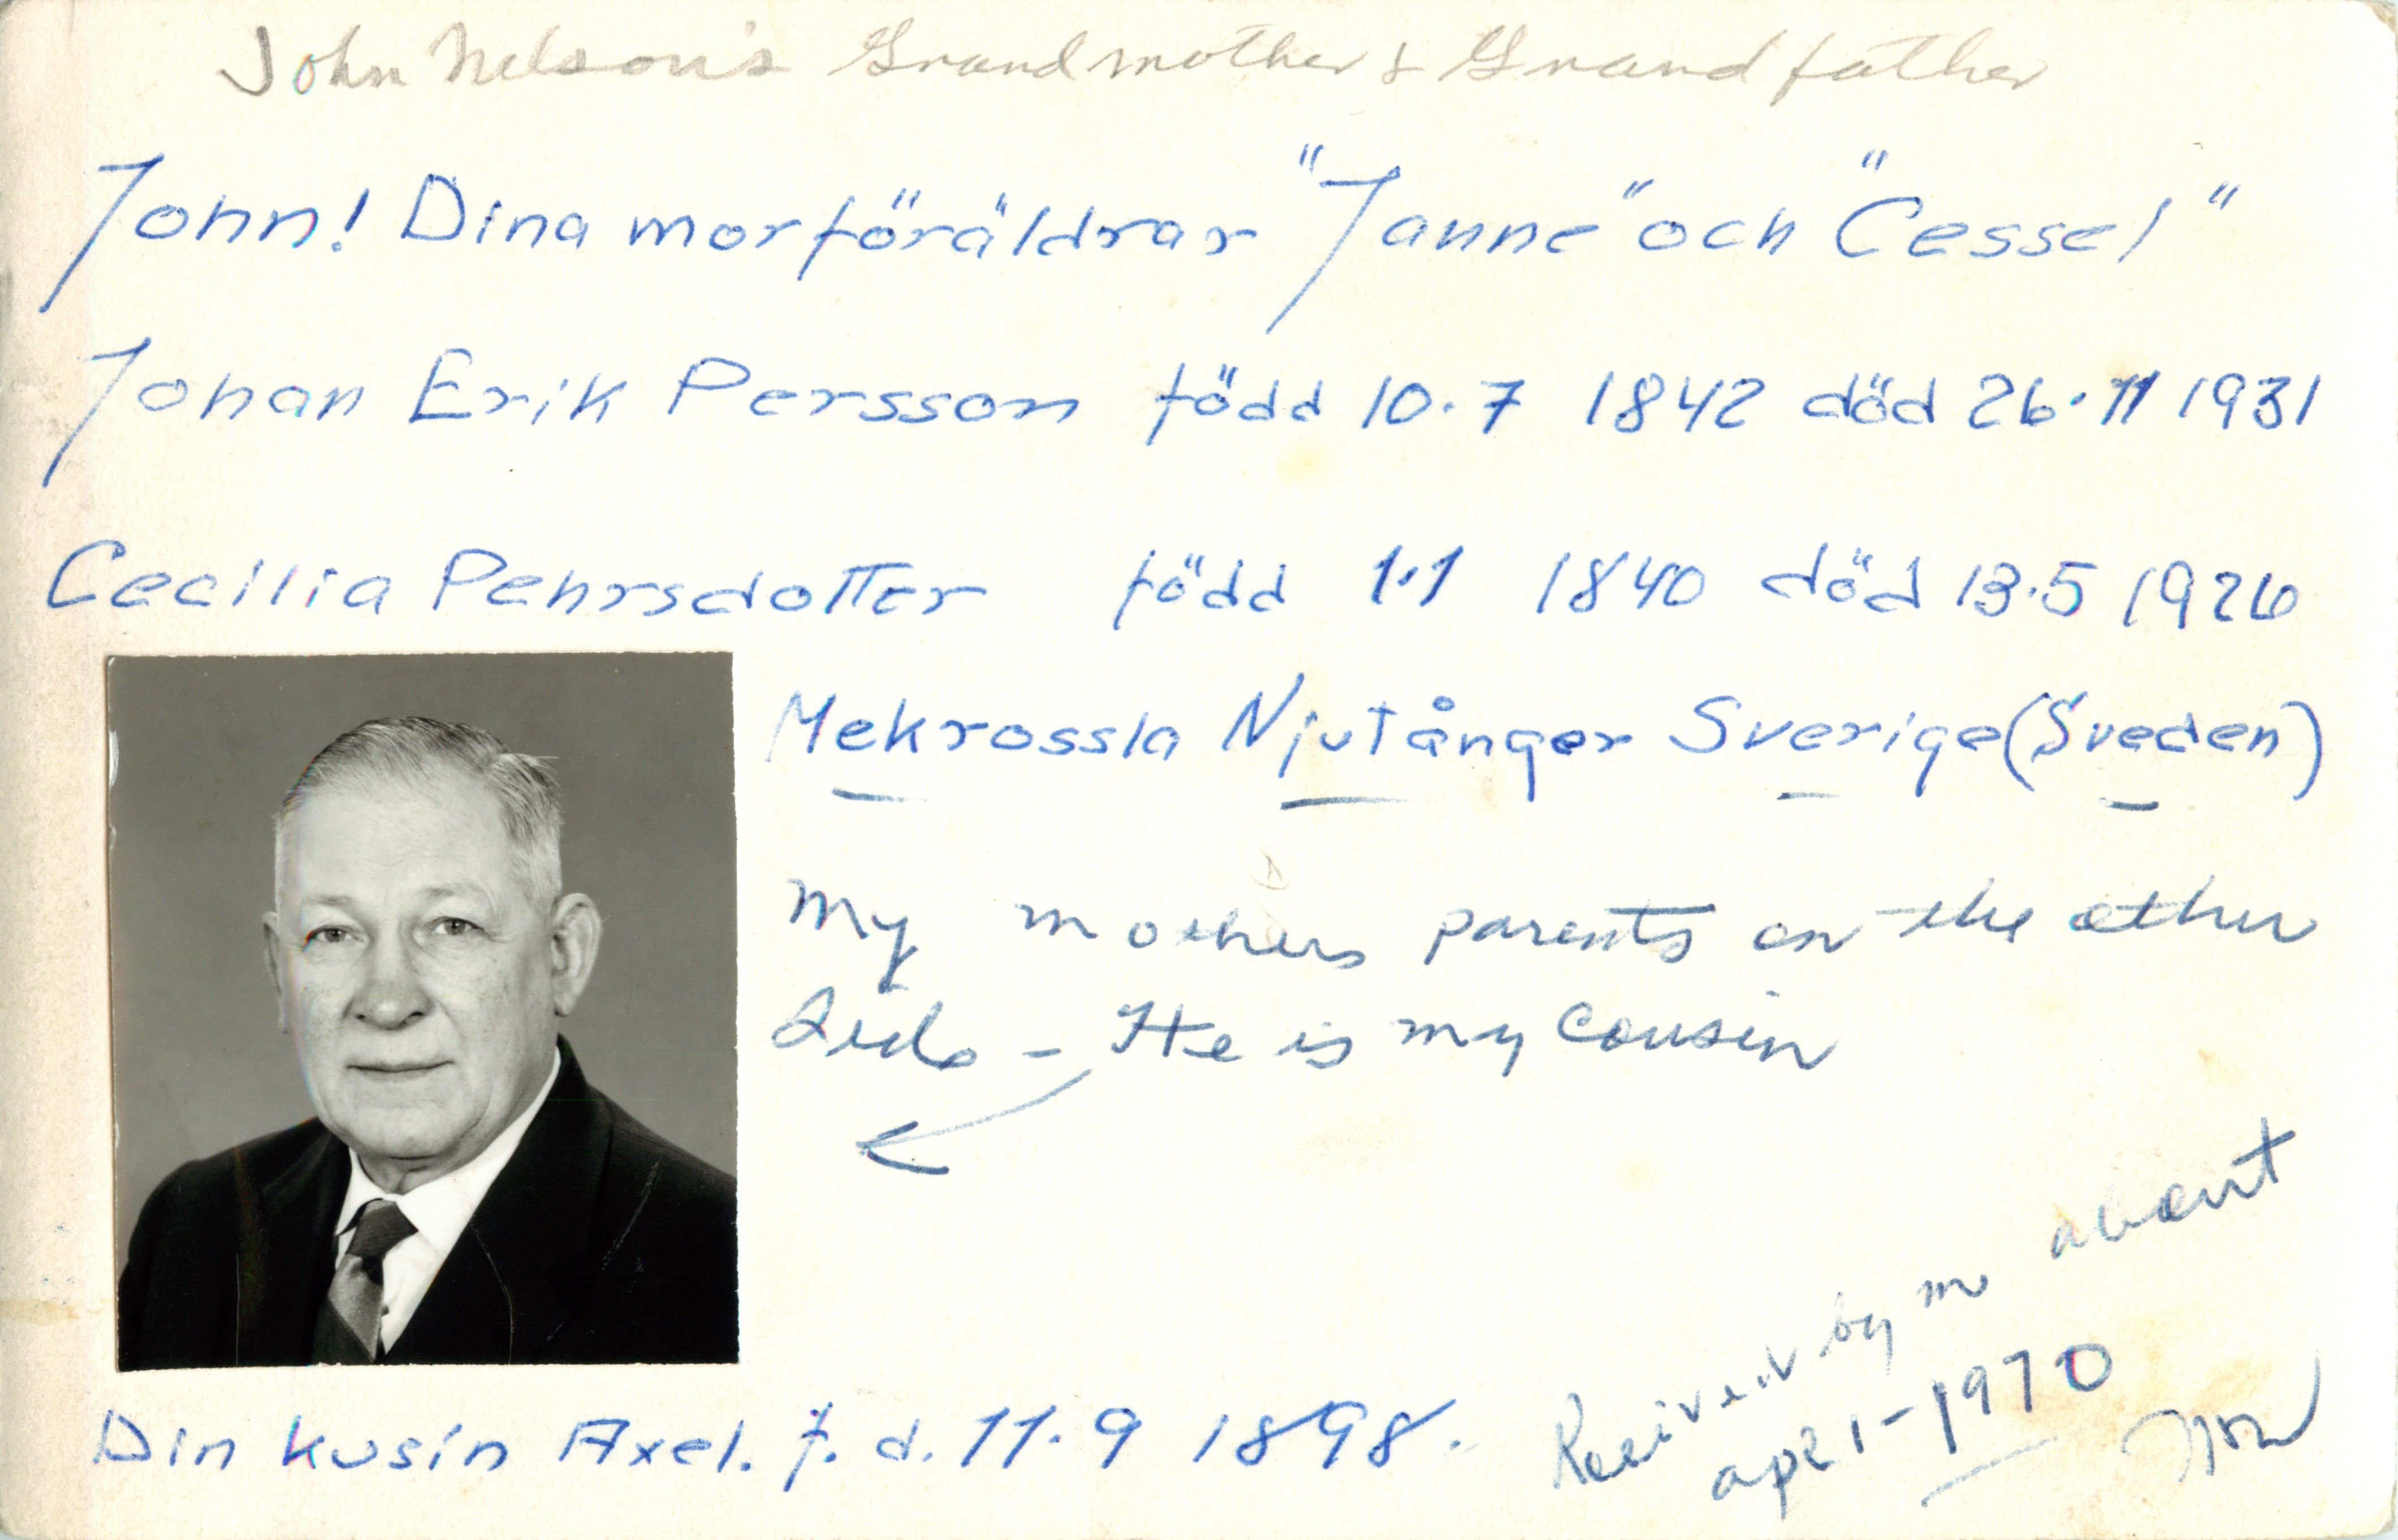 John Nelson's Grandmother & Grandfather
John! Dina morföräldrar "Janne" och "Cessel"
Johan Erik Persson född 10.7 1842 död 26.11 1931
Cecilia Pehrsdotter född 1.1 1840 död 13.5 1926
Mekrossla Njutånger Sverige (Sveden)
My mothers parents on the other
side - He is my cousin
Received by m about
apr 1 - 1970
Din kusin Axel. f. d. 11.9 1898.